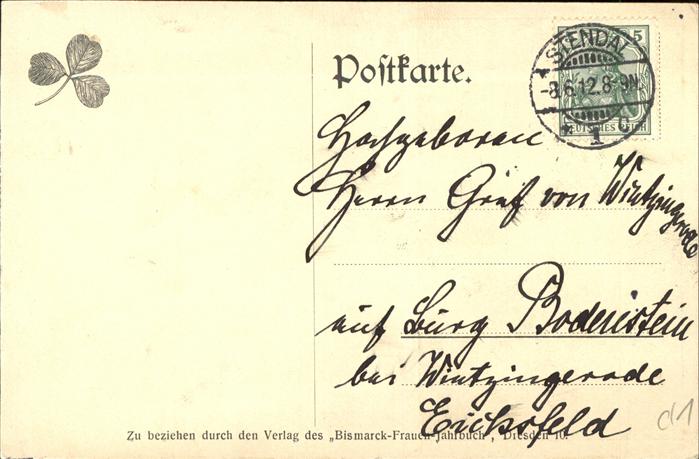 Postkarte.
STENDAL
-8.6.12.8-9N.
* 1 c
5
DEUTSCHES REICH
Hochgeboren
Herrn Graf von Wintzingerode
auf Burg Bodenstein
bei Wintzingerode
Eichsfeld
d1
Zu beziehen durch den Verlag des „Bismarck-Frauen-Jahrbuch", Dresden 10.